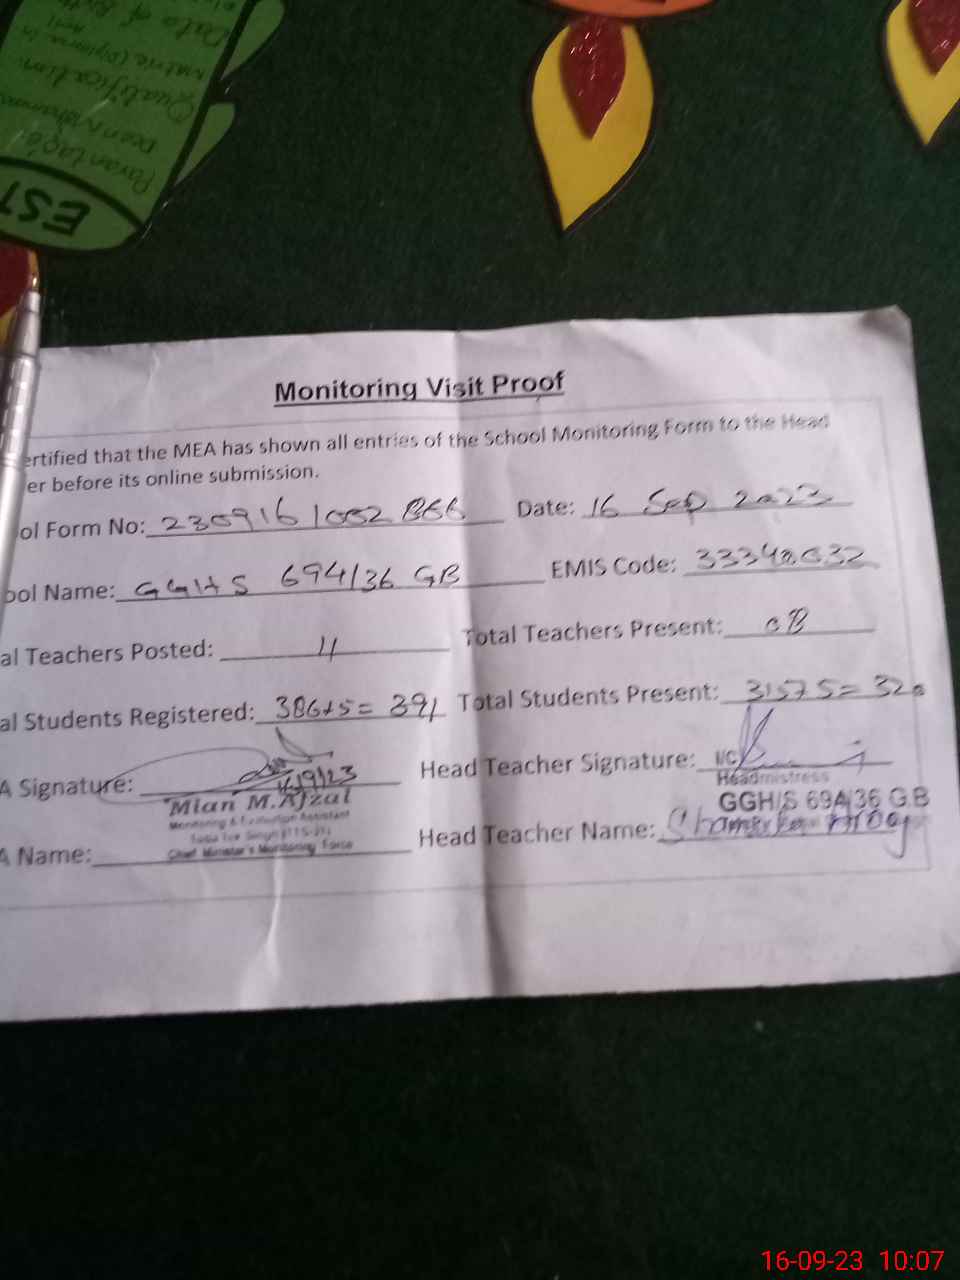 EST
Qualification
Date of
Monitoring Visit Proof
ertified that the MEA has shown all entries of the School Monitoring Form to the Head
er before its online submission.
ol Form No: Date: 16 Sep 2023
ool Name: GGHS 694/36 GB EMIS Code:
al Teachers Posted: 11 Total Teachers Present: 08
al Students Registered: 386+5= 391 Total Students Present: 315+5= 320
A Signature: 16/9/23 Head Teacher Signature:
Mian M.Afzal
Monitoring & Evaluation Assistant
Toba Tek Singh
Chief Minister's Monitoring Force
A Name:
I/C
Headmistress
GGH/S 694/36 G.B
Head Teacher Name:
16-09-23 10:07